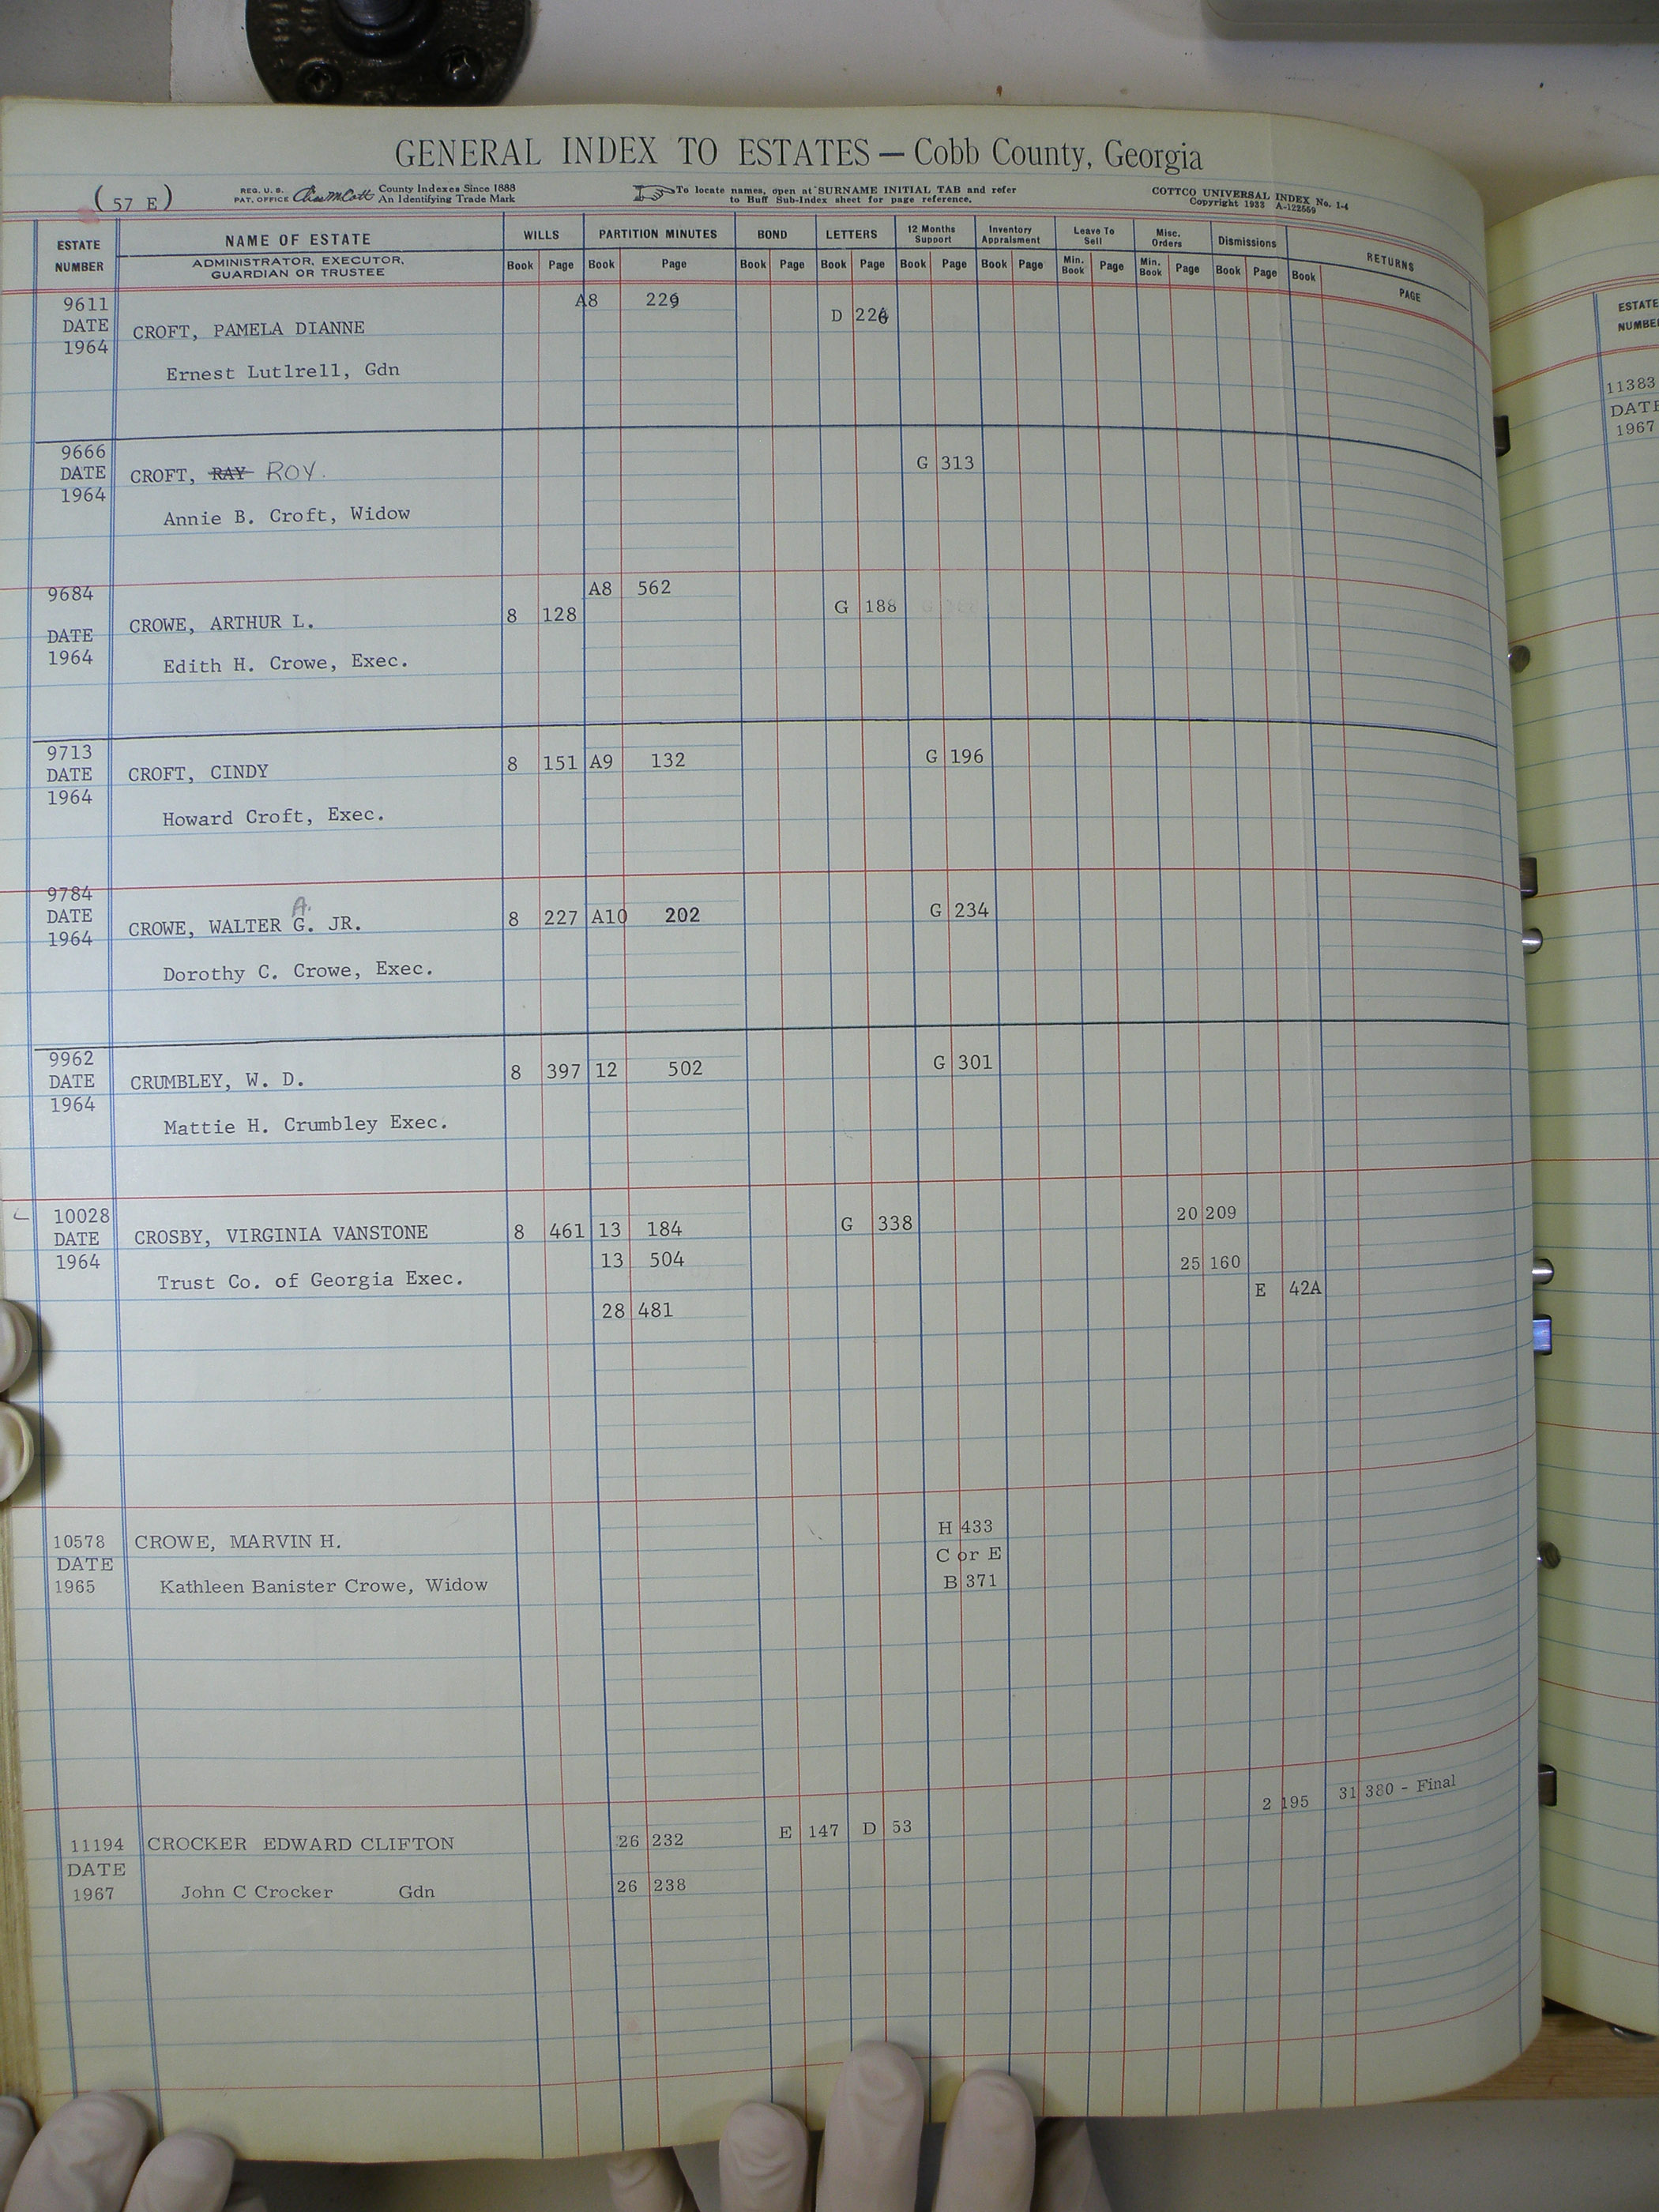 GENERAL INDEX TO ESTATES — Cobb County, Georgia
(57 E)
REG. U. S. PAT. OFFICE County Indexes Since 1888 An Identifying Trade Mark
To locate names, open at SURNAME INITIAL TAB and refer to Buff Sub-Index sheet for page reference.
COTTCO UNIVERSAL INDEX No. 1-4
Copyright 1933 A-122559
ESTATE NUMBER NAME OF ESTATE WILLS PARTITION MINUTES BOND LETTERS 12 Months Support Inventory Appraisment Leave To Sell Misc. Orders Dismissions RETURNS
ADMINISTRATOR, EXECUTOR, GUARDIAN OR TRUSTEE Book Page Book Page Book Page Book Page Book Page Book Page Min. Book Page Min. Book Page Book Page Book PAGE
9611 A8 229
DATE CROFT, PAMELA DIANNE D 226
1964
Ernest Lutlrell, Gdn
9666
DATE CROFT, RAY ROY. G 313
1964
Annie B. Croft, Widow
9684 A8 562
CROWE, ARTHUR L. 8 128 G 188
DATE
1964 Edith H. Crowe, Exec.
9713
DATE CROFT, CINDY 8 151 A9 132 G 196
1964
Howard Croft, Exec.
9784
A.
DATE CROWE, WALTER G. JR. 8 227 A10 202 G 234
1964
Dorothy C. Crowe, Exec.
9962
DATE CRUMBLEY, W. D. 8 397 12 502 G 301
1964
Mattie H. Crumbley Exec.
10028 20 209
DATE CROSBY, VIRGINIA VANSTONE 8 461 13 184 G 338
1964 13 504 25 160
Trust Co. of Georgia Exec. E 42A
28 481
10578 CROWE, MARVIN H. H 433
DATE C or E
1965 Kathleen Banister Crowe, Widow B 371
2 195 31 380 - Final
11194 CROCKER EDWARD CLIFTON 26 232 E 147 D 53
DATE
1967 John C Crocker Gdn 26 238
ESTATE
NUMBE
11383
DATE
1967